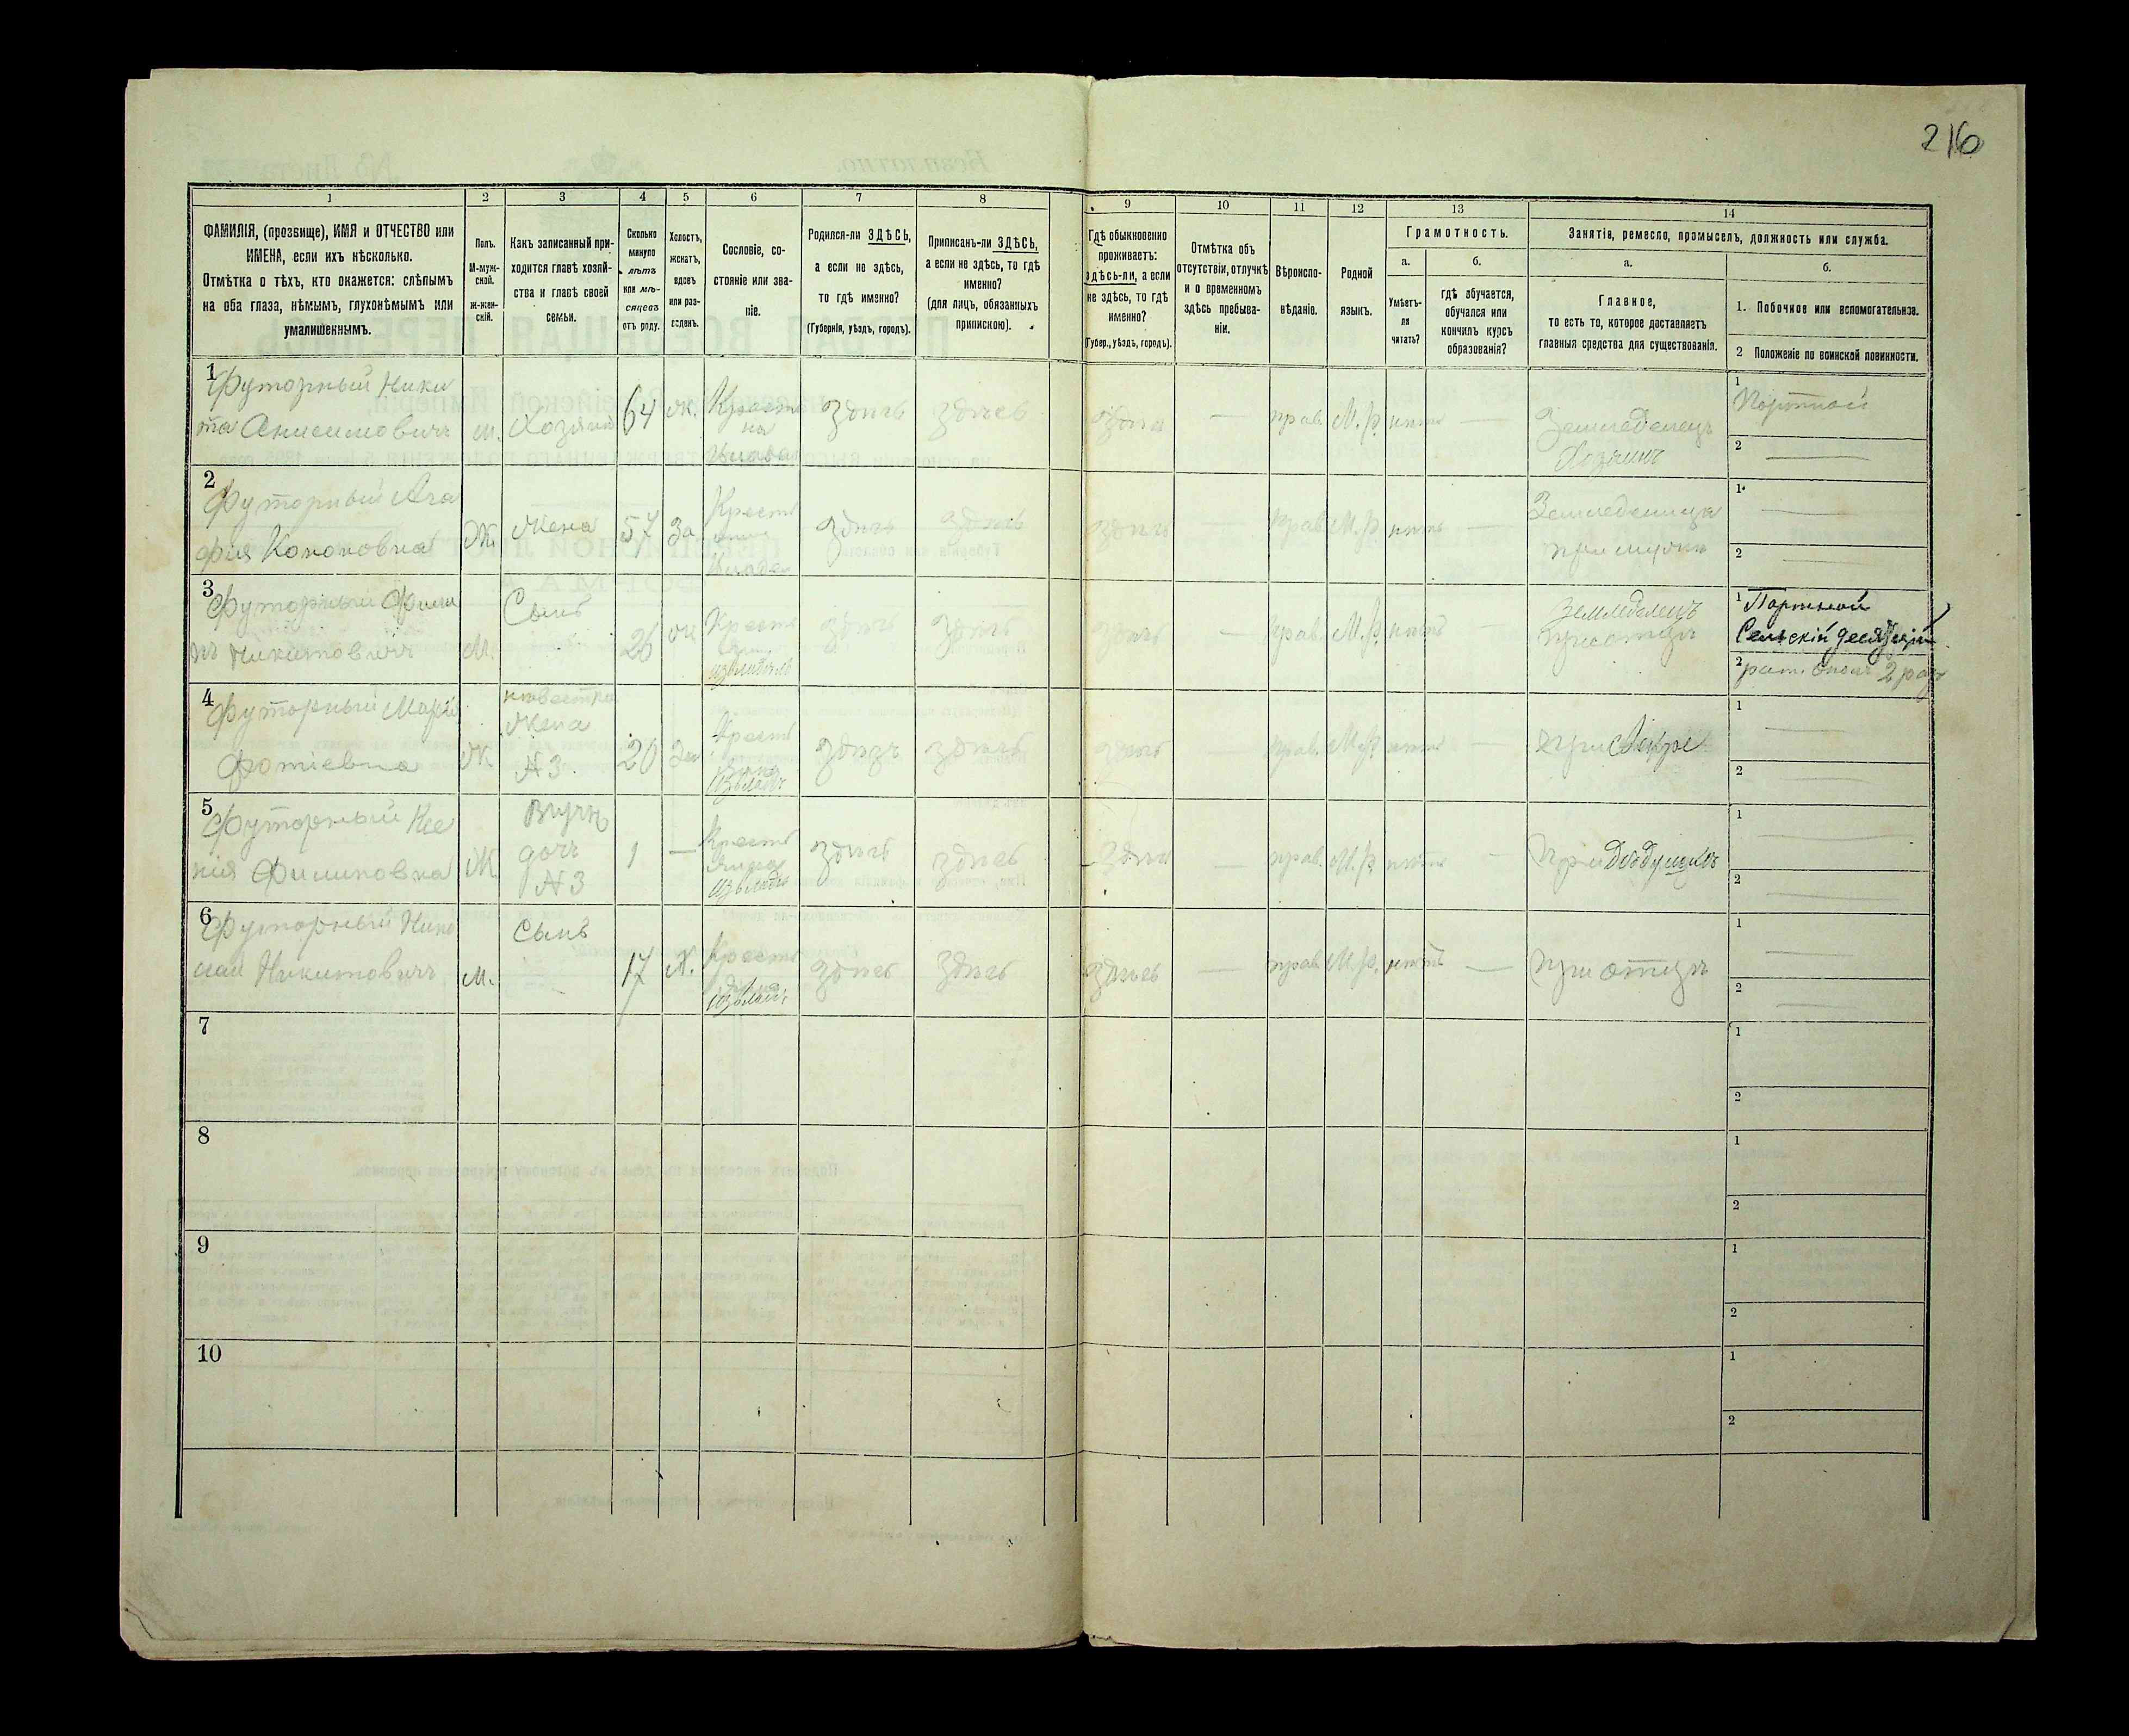 216
1
2
3
4
5
6
7
8
9
10
11
12
13
14
ФАМИЛІЯ, (прозвище), ИМЯ и ОТЧЕСТВО или
ИМЕНА, если ихъ нѣсколько.
Отмѣтка о тѣхъ, кто окажется: слѣпымъ
на оба глаза, нѣмымъ, глухонѣмымъ или
умалишеннымъ.
Полъ.
М-муж-
ской.
Ж-жен-
скій.
Какъ записанный при-
ходится главѣ хозяй-
ства и главѣ своей
семьи.
Сколько
минуло
лѣтъ
или мѣ-
сяцевъ
отъ роду.
Холостъ,
женатъ,
вдовъ
или раз-
веденъ.
Сословіе, со-
стояніе или зва-
ніе.
Родился-ли ЗДѢСЬ,
а если не здѣсь,
то гдѣ именно?
(Губернія, уѣздъ, городъ).
Приписанъ-ли ЗДѢСЬ,
а если не здѣсь, то гдѣ
именно?
(для лицъ, обязанныхъ
припискою).
Гдѣ обыкновенно
проживаетъ:
здѣсь-ли, а если
не здѣсь, то гдѣ
именно?
(Губер., уѣздъ, городъ).
Отмѣтка объ
отсутствіи, отлучкѣ
и о временномъ
здѣсь пребыва-
ніи.
Вѣроиспо-
вѣданіе.
Родной
языкъ.
Грамотность.
а.
Умѣетъ-
ли
читать?
б.
гдѣ обучается,
обучался или
кончилъ курсъ
образованія?
Занятіе, ремесло, промыселъ, должность или служба.
а.
Главное,
то есть то, которое доставляетъ
главныя средства для существованія.
б.
1. Побочное или вспомогательное.
2 Положеніе по воинской повинности.
1
Футорный Ники
та Анисимовичъ
м.
Хозяинъ
64
ж.
Крест
здѣсь
здѣсь
здѣсь
—
прав.
М.р.
нѣтъ
—
Земледелецъ
Хозяинъ
1
Портной
2
2
Футорный Ага
фия Кононовна
Ж
Жена
57
За
Крест
здѣсь
здѣсь
здѣсь
—
прав.
М.р.
нѣтъ
—
при мужѣ
1
2
3
Футорный Фили
пъ Никитовичъ
М.
Сынъ
26
Крест
здѣсь
здѣсь
здѣсь
—
прав.
М.р.
нѣтъ
—
Земледелецъ
при отцѣ
1 Портной
Сельскій десятскій
2 рат. опол. 2 раз
4
Футорный Марія
Фотіевна
Ж
невестка
Жена
№3.
20
За
Крест
здѣсь
здѣсь
здѣсь
—
прав.
М.р.
нѣтъ
—
при свекре
1
2
5
Футорный Ксе
нія Филиповна
Ж.
внучка
дочь
№3
1
—
Крест
здѣсь
здѣсь
здѣсь
—
прав.
М.р.
нѣтъ
—
при дѣдушкѣ
1
2
6
Футорный Нико
лай Никитовичъ
м.
сынъ
17
Х.
Крест
здѣсь
здѣсь
здѣсь
—
прав.
М.р.
нѣтъ
—
при отцѣ
1
2
7
1
2
8
1
2
9
1
2
10
1
2